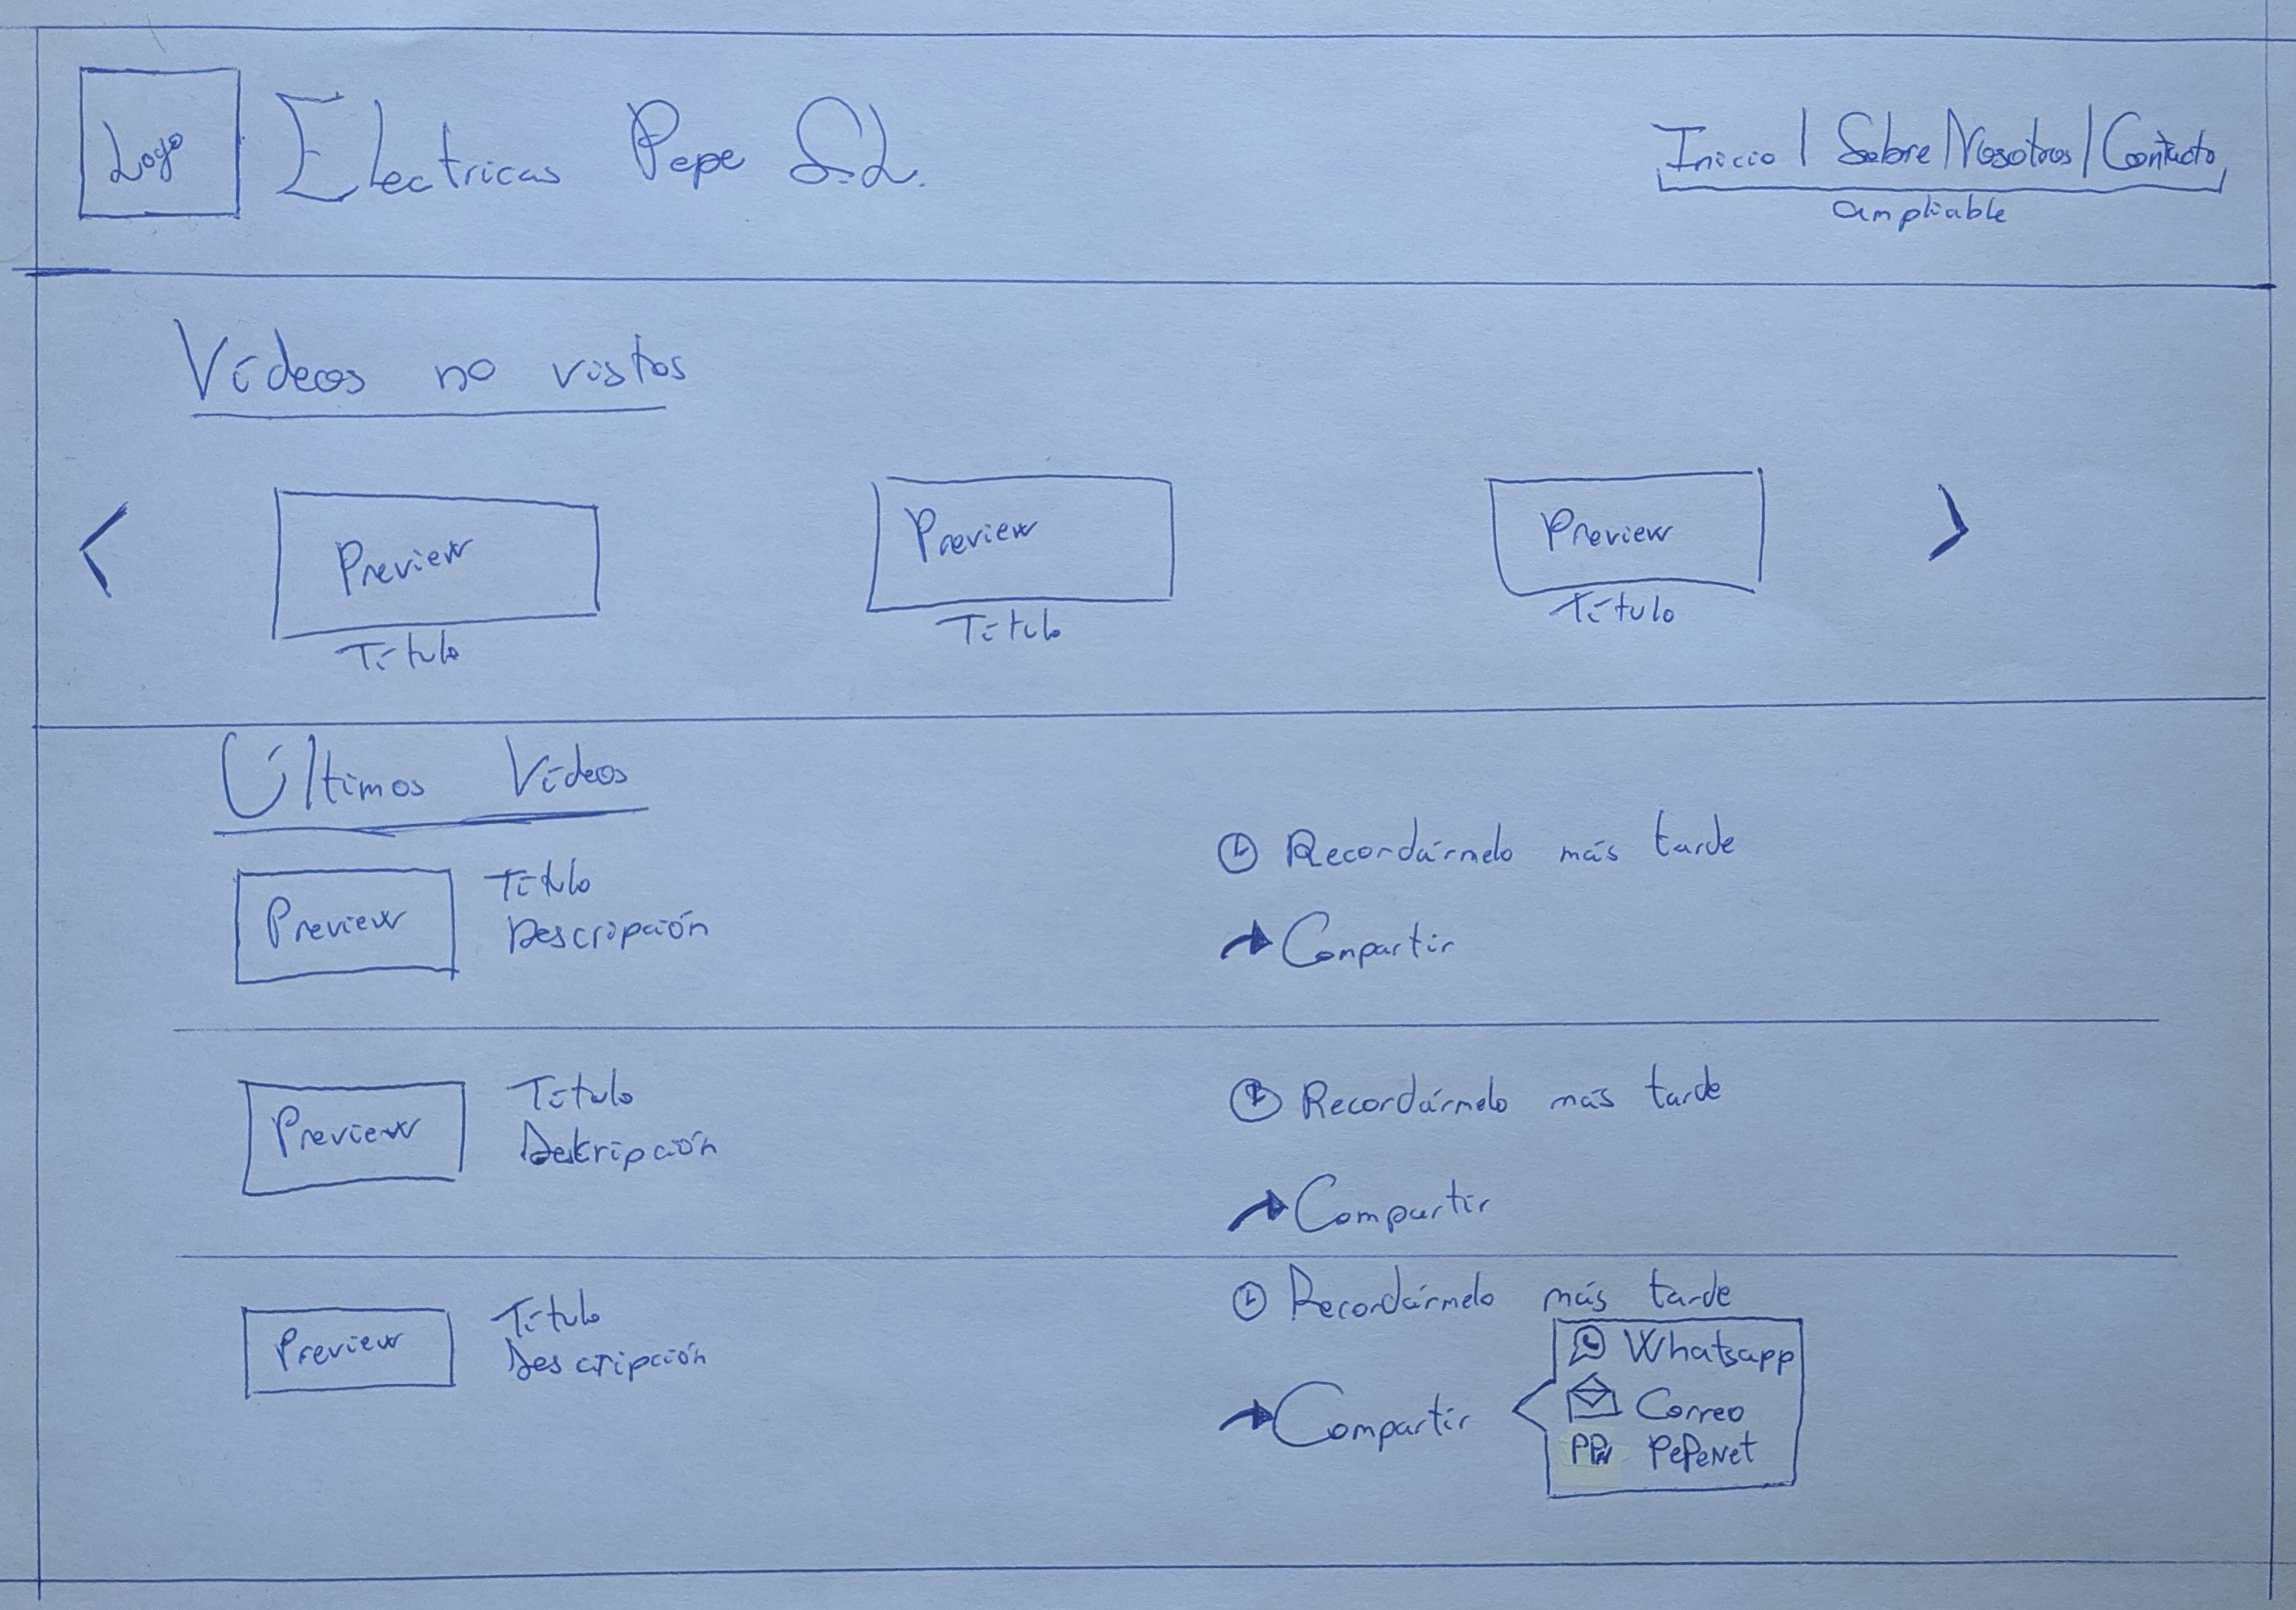 Logo
Electricas Pepe S.L.
Inicio | Sobre Nosotros | Contacto
ampliable
Vídeos no vistos
< Preview Preview Preview >
Título Título Título
Últimos Vídeos
Preview
Título
Descripción
Recordármelo más tarde
Compartir
Preview
Título
Descripción
Recordármelo más tarde
Compartir
Preview
Título
Descripción
Recordármelo más tarde
Compartir
Whatsapp
Correo
PPN PePeNet